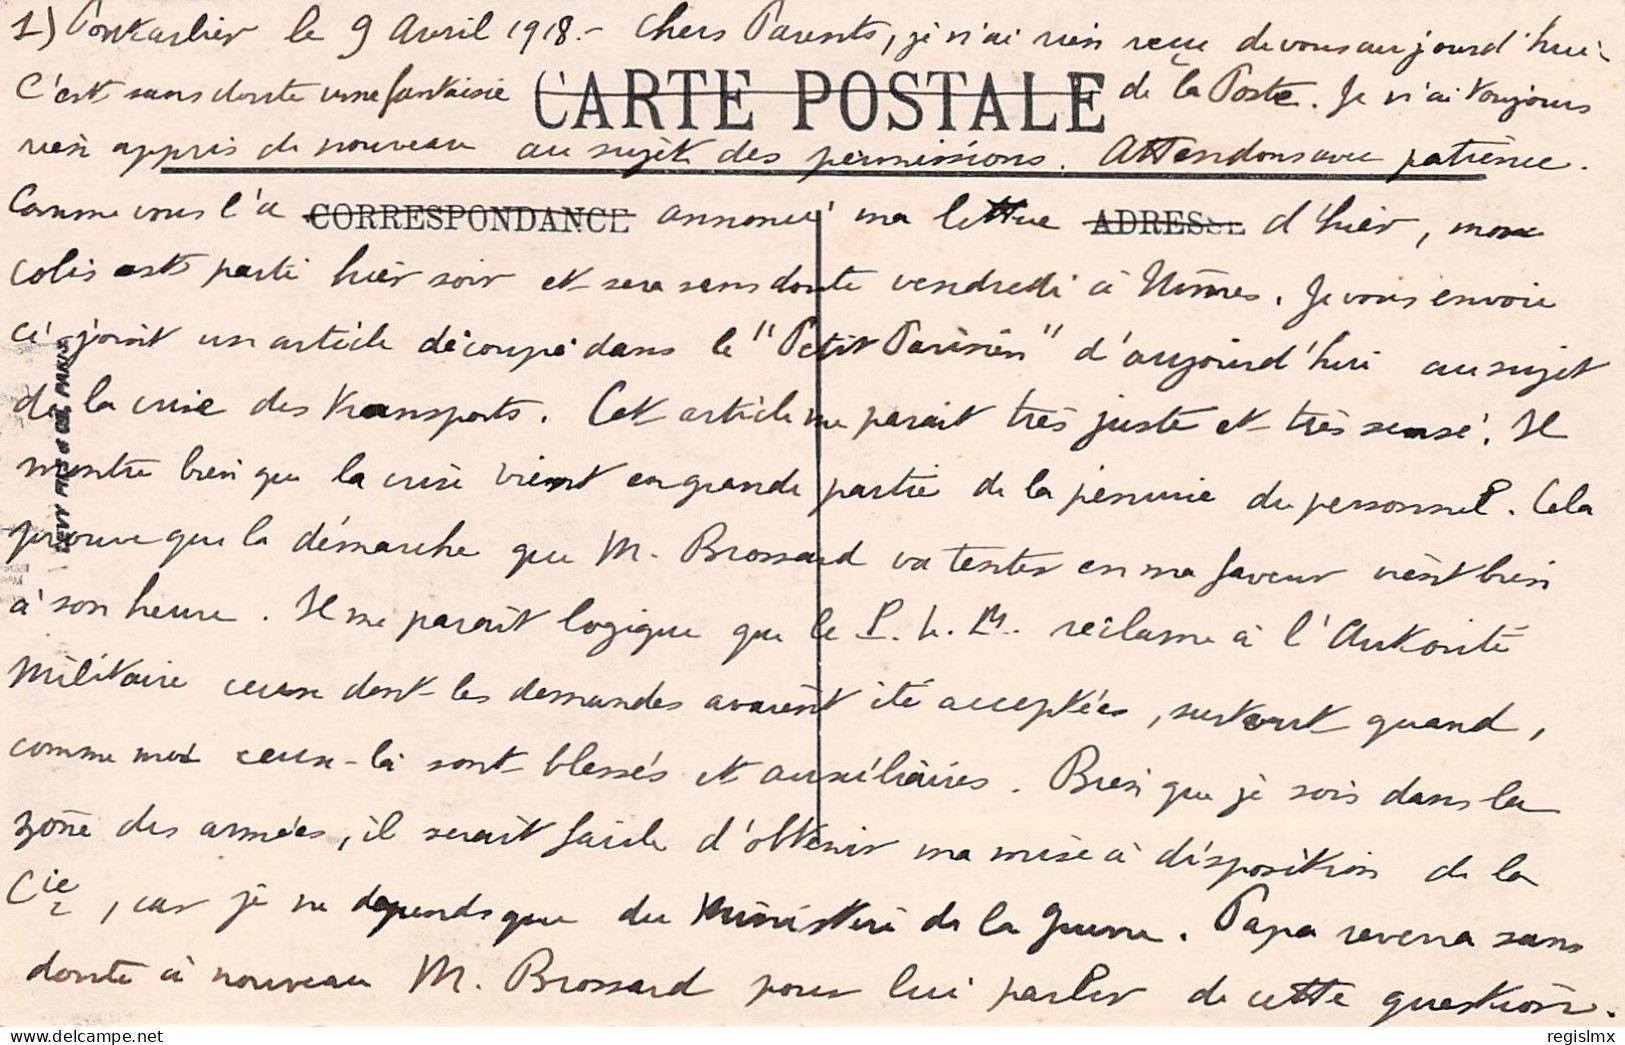 1) Pontarlier le 9 Avril 1918.- Chers Parents, je n'ai rien reçu de vous aujourd'hui.
C'est sans doute une fantaisie CARTE POSTALE de la Poste. Je n'ai toujours
rien appris de nouveau au sujet des permissions. Attendons avec patience.
Comme vous l'a CORRESPONDANCE annoncé ma lettre ADRESSE d'hier, mon
colis est parti hier soir et sera sans doute vendredi à Nîmes. Je vous envoie
ci-joint un article découpé dans le "Petit Parisien" d'aujourd'hui au sujet
de la crise des transports. Cet article me paraît très juste et très sensé. Il
montre bien que la crise vient en grande partie de la pénurie du personnel. Cela
prouve que la démarche que M. Brossard va tenter en ma faveur vient bien
à son heure. Il me paraît logique que le P.L.M. réclame à l'Autorité
Militaire ceux dont les demandes avaient été acceptées, surtout quand,
comme moi ceux-là sont blessés et auxiliaires. Bien que je sois dans la
zône des armées, il serait facile d'obtenir ma mise à disposition de la
Cie, car je ne dépends que du Ministère de la Guerre. Papa reverra sans
doute à nouveau M. Brossard pour lui parler de cette question.
LEVY FILS & CIE, PARIS
regislmx